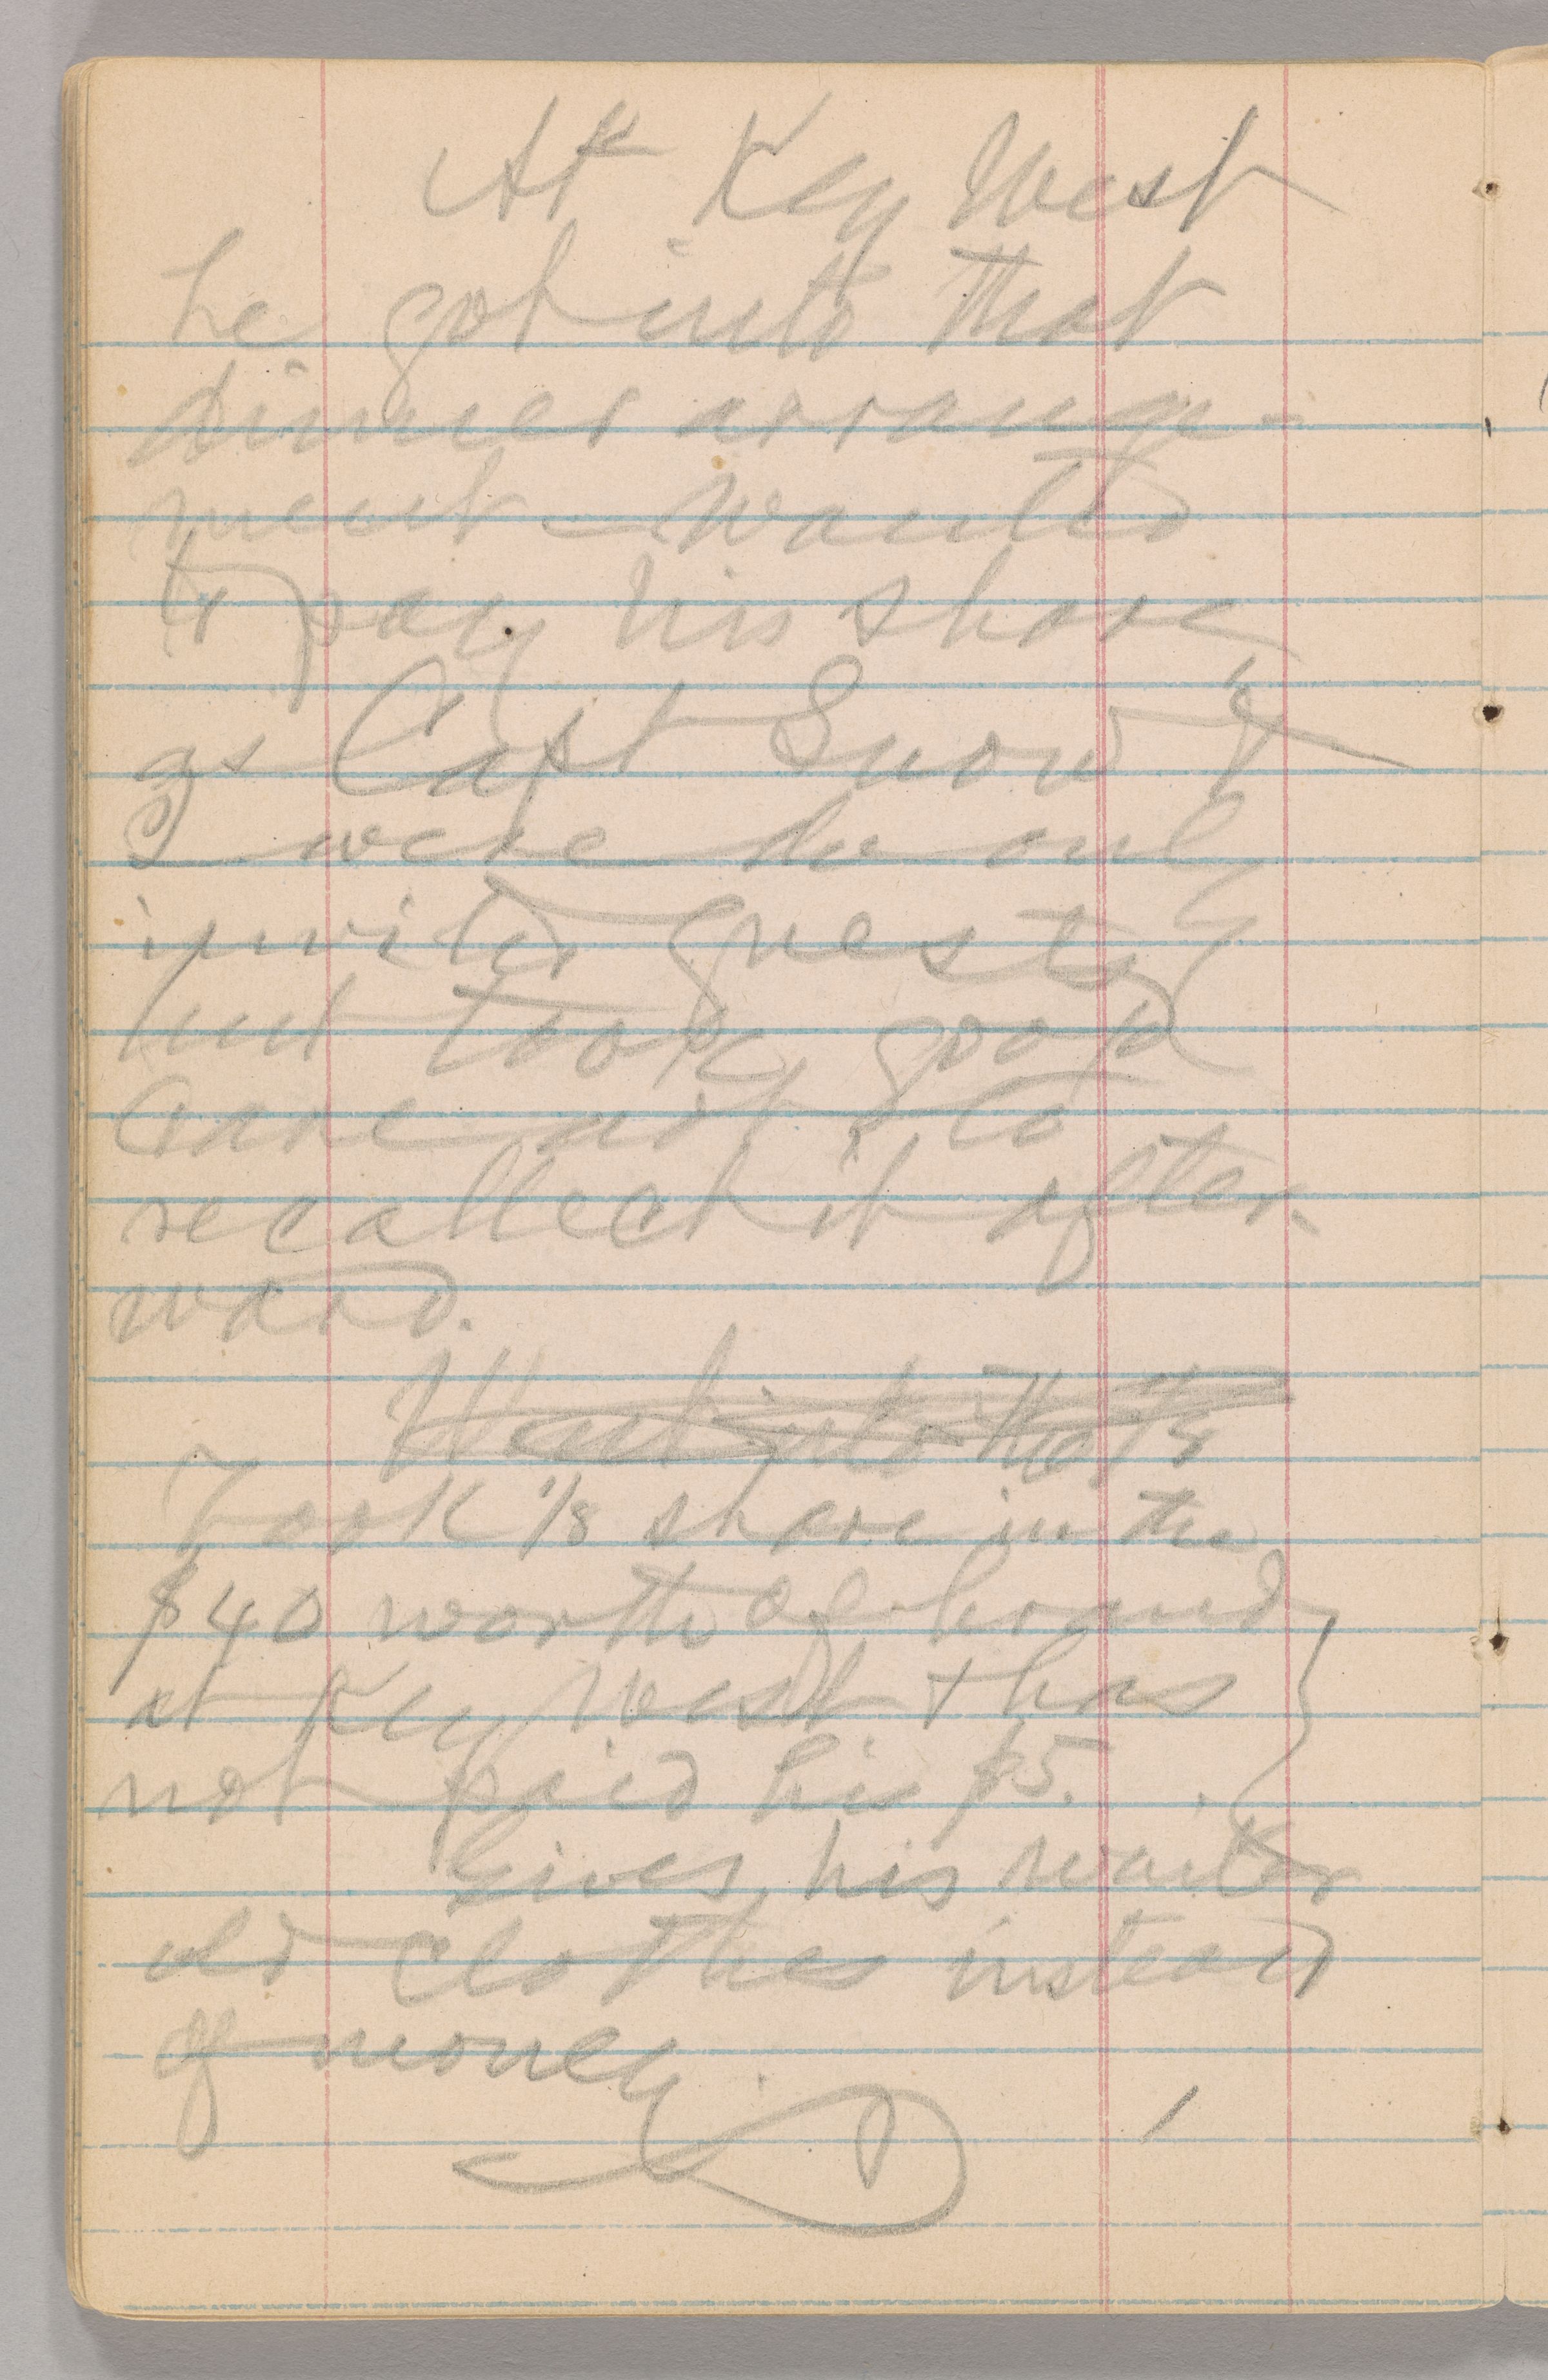 At Key West
he got into that
dinner arrange-
ment—wanted
to pay his share
as Capt Snow &
I were the only
invited guests,
but took good
care not to
recollect it after-
ward.
Went into the 1/8
Took 1/8 share in the
$40 worth of brand
at Key West & has
not paid his $5.
Gives his waiter
old clothes instead
of money.